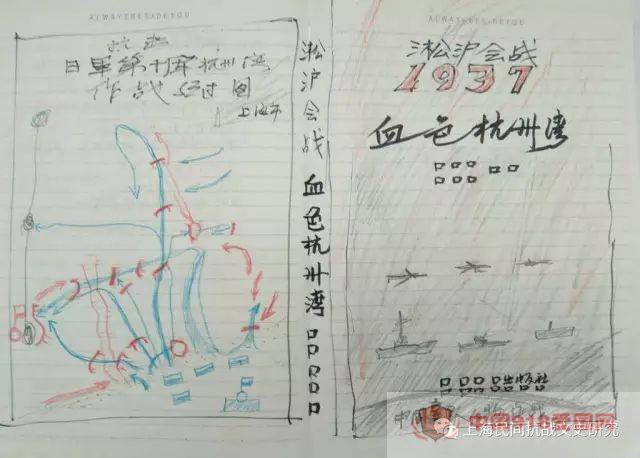 ALWAYBESIDEYOU
抗击
日军第十军杭州湾
作战经过图
上海市
淞沪会战 血色杭州湾 口口口口口
ALWAYBESIDEYOU
淞沪会战
1937
血色杭州湾
口口口 口口
口口口口
口口口口口出版社
中国918爱国网
上海民间抗战文史研究